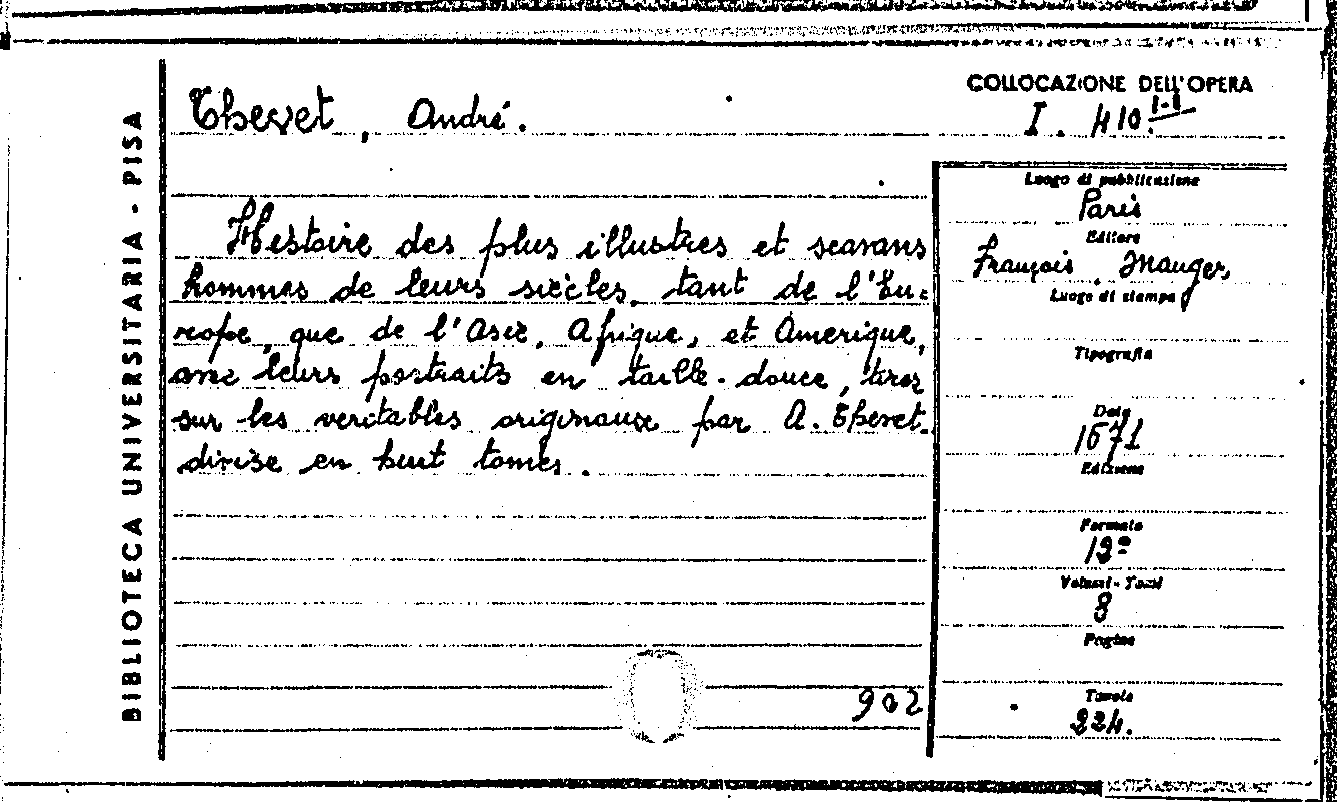 BIBLIOTECA UNIVERSITARIA - PISA
Thevet, André.
COLLOCAZIONE DELL'OPERA
I. 410.
Histoire des plus illustres et scavans
hommes de leurs siècles, tant de l'Eu=
rope, que de l'Asie, Afrique, et Amerique,
avec leurs portraits en taille-douce, tirez
sur les veritables originaux par A. Thevet.
divise en huit tomes.
902
Luogo di pubblicazione
Paris
Editore
François Mauger
Luogo di stampa
Tipografia
Data
1671
Edizione
Formato
12º
Volumi - Tomi
8
Pagine
Tavole
224.